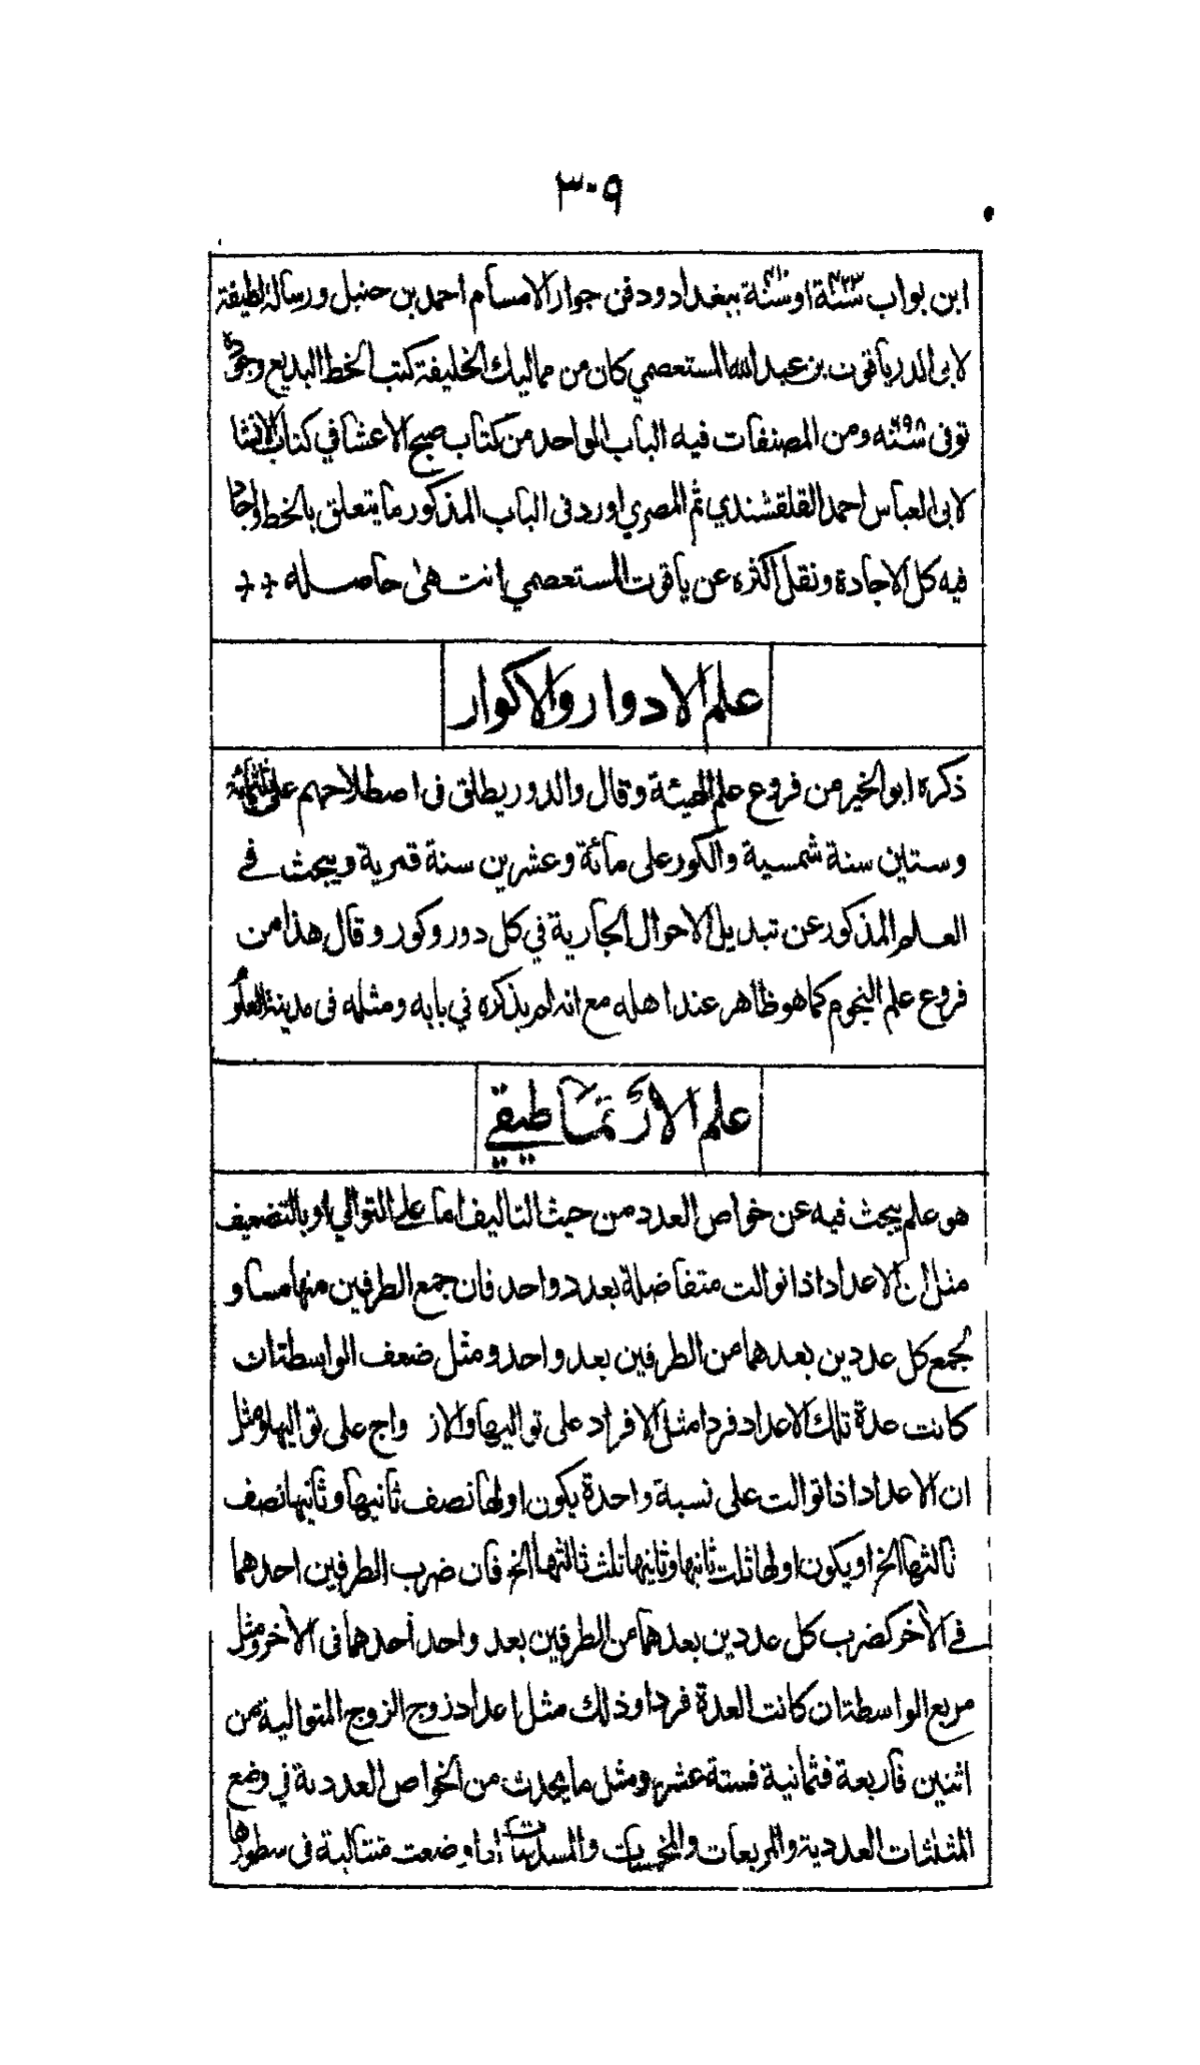 ٣٠٩
ابن بواب سنة ٤٢٣ او سنة ببغداد ودفن جوار الامام احمد بن حنبل ورسالة لطيفة
لابى الدر ياقوت بن عبد الله المستعصمي كان من مماليك الخليفة كتب الخط البديع وجوده
توفى سنة ٦٩٨ ومن المصنفات فيه الباب الواحد من كتاب صبح الاعشا في كتاب الانشا
لابى العباس احمد القلقشندي ثم المصري اورد فى الباب المذكور ما يتعلق بالخط واجاد
فيه كل الاجادة ونقل اكثره عن ياقوت المستعصمي انتهى حاصله
علم الادوار والاكوار
ذكره ابو الخير من فروع علم الهيئة وقال والدور يطلق فى اصطلاحهم على ثلثمائة
وستين سنة شمسية والكور على مائة وعشرين سنة قمرية ويبحث في
العلم المذكور عن تبديل الاحوال الجارية في كل دور وكور وقال هذا من
فروع علم النجوم كما هو ظاهر عند اهله مع انه لم يذكره في بابه ومثله فى مدينة العلوم
علم الارتماطيقي
هو علم يبحث فيه عن خواص العدد من حيث التاليف اما على التوالي او بالتضعيف
مثل ان الاعداد اذا توالت متفاضلة بعدد واحد فان جمع الطرفين منها مساو
لجمع كل عددين بعدهما من الطرفين بعد واحد ومثل ضعف الواسطة ان
كانت عدة تلك الاعداد فردا مثل الافراد على تواليها والازواج على تواليها ومثل
ان الاعداد اذا توالت على نسبة واحدة يكون اولها نصف ثانيها وثانيها نصف
ثالثها الخ او يكون اولها ثلث ثانيها وثانيها ثلث ثالثها الخ فان ضرب الطرفين احدهما
في الأخر كضرب كل عددين بعدهما من الطرفين بعد واحد أحدهما فى الأخر ومثل
مربع الواسطة ان كانت العدة فردا وذلك مثل اعداد زوج الزوج المتوالية من
اثنين فاربعة فثمانية فستة عشر ومثل ما يحدث من الخواص العددية في وضع
المثلثات العددية والمربعات والمخمسات والمسدسات اذا وضعت متتالية فى سطورها